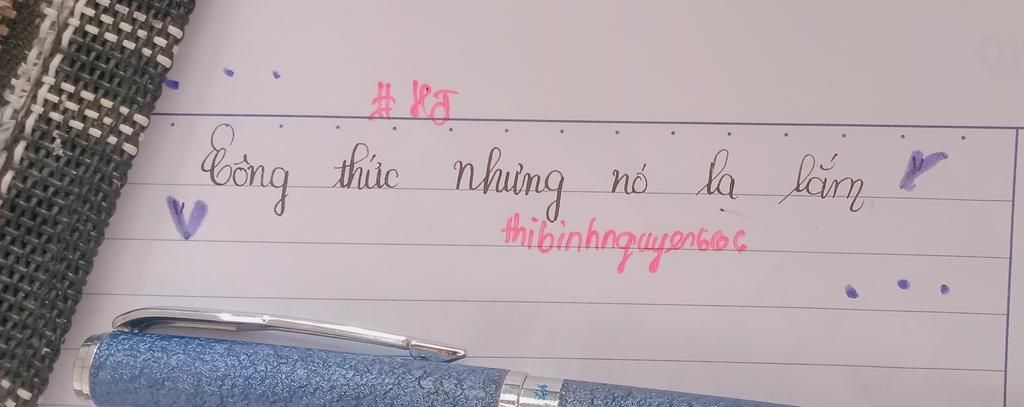 # HJ
Công thức nhưng nó lạ lắm
thibinhnguyen606